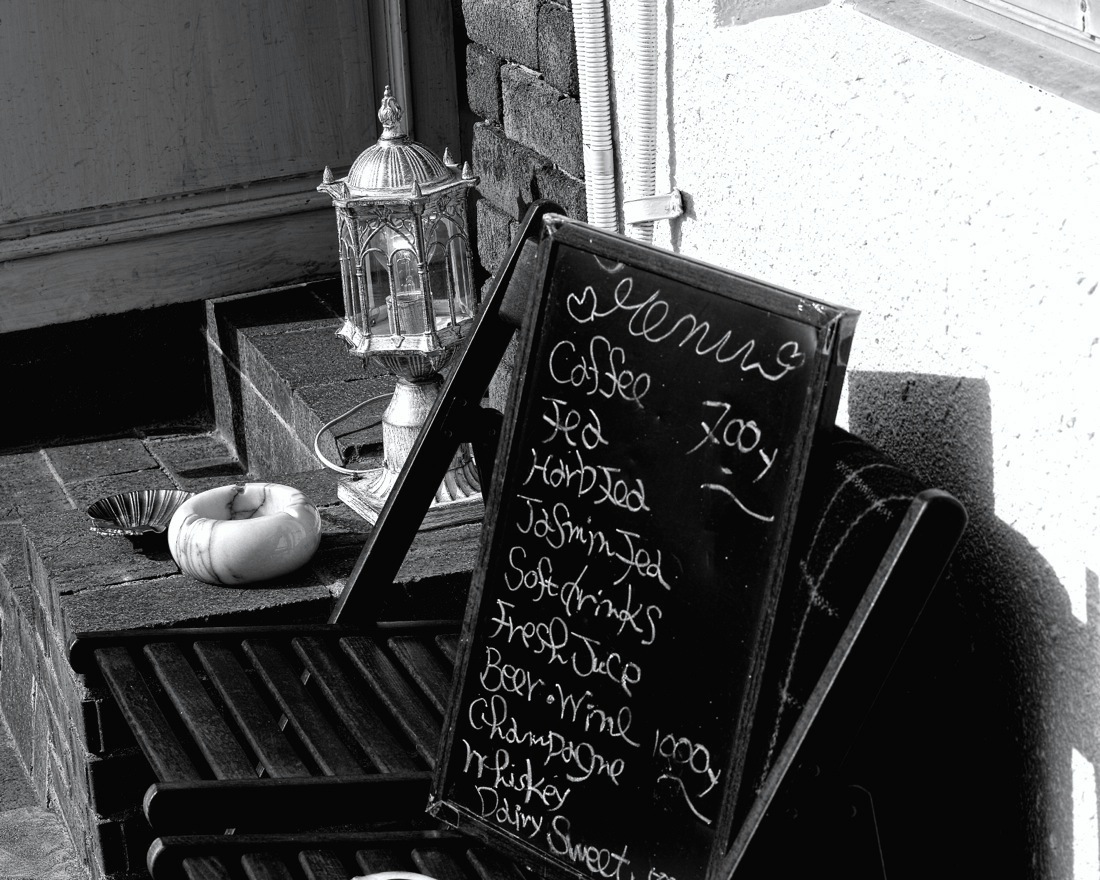 Menu
Coffee
Tea 700y
Harb Tea
Jasmin Tea
Soft drinks
Fresh Juce
Beer・Wine
Champagne 1000y
Whiskey
Dairy Sweet